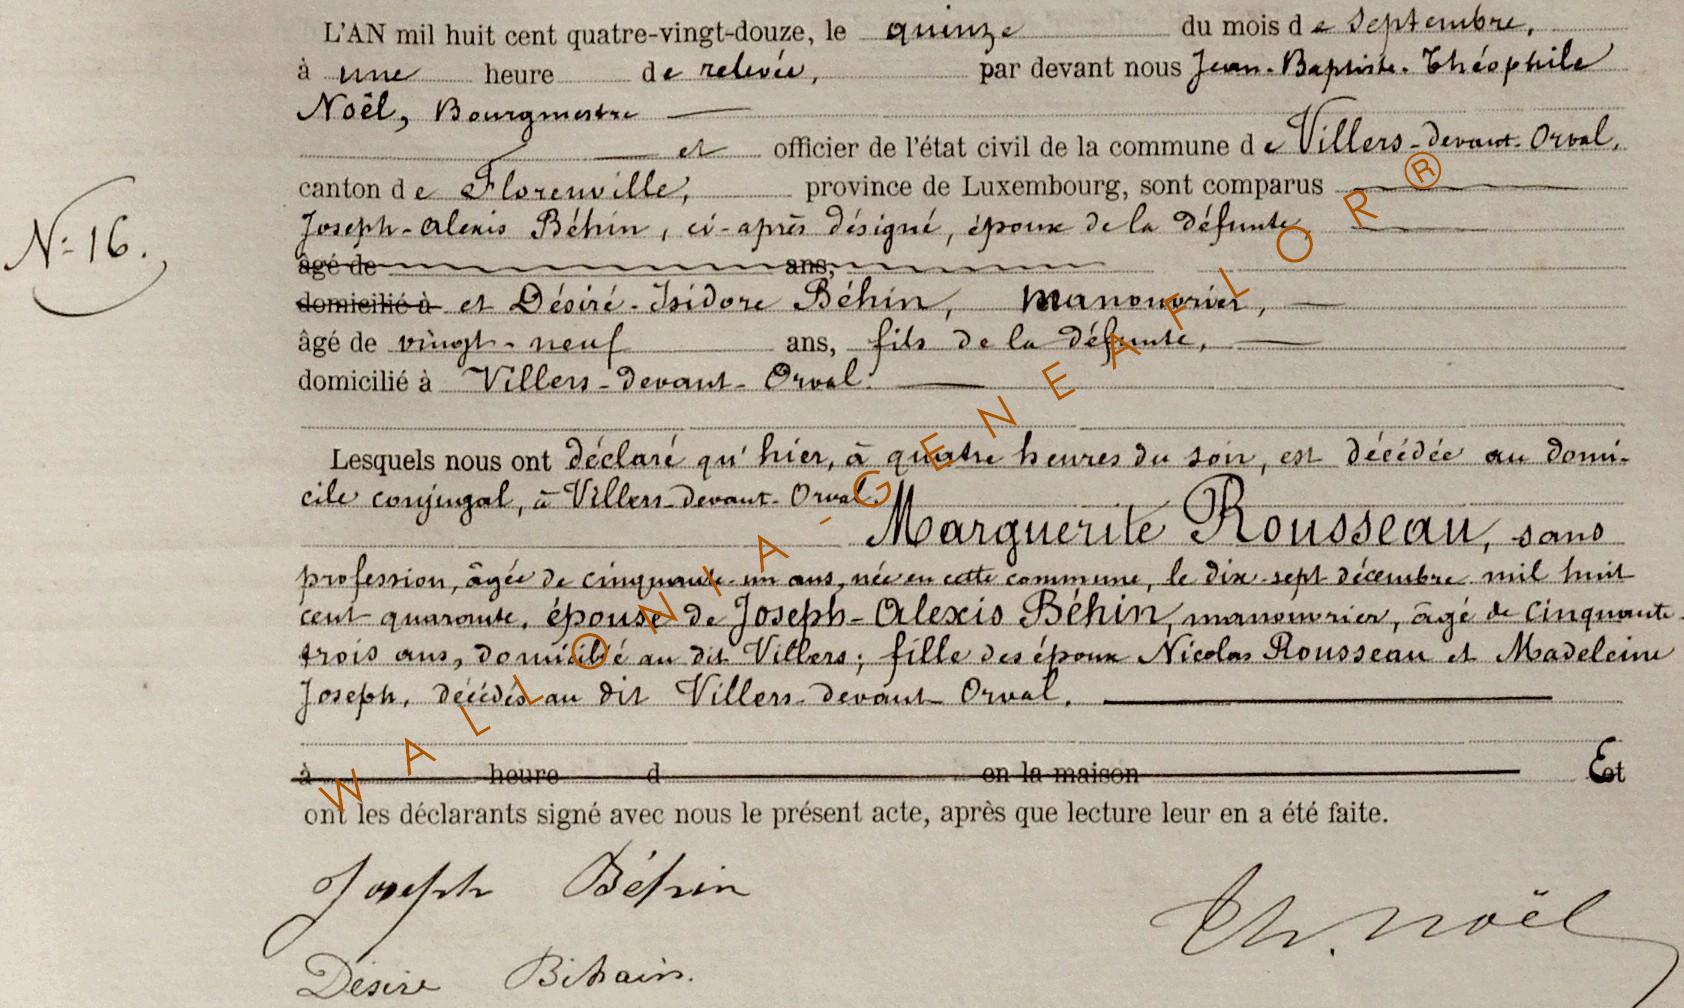 L'AN mil huit cent quatre-vingt-douze, le quinze du mois de Septembre,
à une heure de relevée, par devant nous Jean-Baptiste-Théophile
Noël, Bourgmestre
et officier de l'état civil de la commune de Villers-devant-Orval,
canton de Florenville, province de Luxembourg, sont comparus
N: 16.
Joseph-Alexis Béhin, ci-après désigné, époux de la défunte,
âgé de ans,
domicilié à et Désiré-Isidore Béhin, manouvrier,
âgé de vingt-neuf ans, fils de la défunte,
domicilié à Villers-devant-Orval.
Lesquels nous ont déclaré qu'hier, à quatre heures du soir, est décédée au domi-
cile conjugal, à Villers-devant-Orval.
Marguerite Rousseau, sans
profession, âgée de cinquante-un ans, née en cette commune, le dix-sept décembre mil huit
cent quarante, épouse de Joseph-Alexis Béhin, manouvrier, âgé de cinquante-
trois ans, domicilié au dit Villers; fille des époux Nicolas Rousseau et Madeleine
Joseph, décédés au dit Villers-devant-Orval.
à heure d en la maison Et
ont les déclarants signé avec nous le présent acte, après que lecture leur en a été faite.
Joseph Béhin
Th. Noël
Désiré Bihain.
WALLONIA-GENEAFLOR®